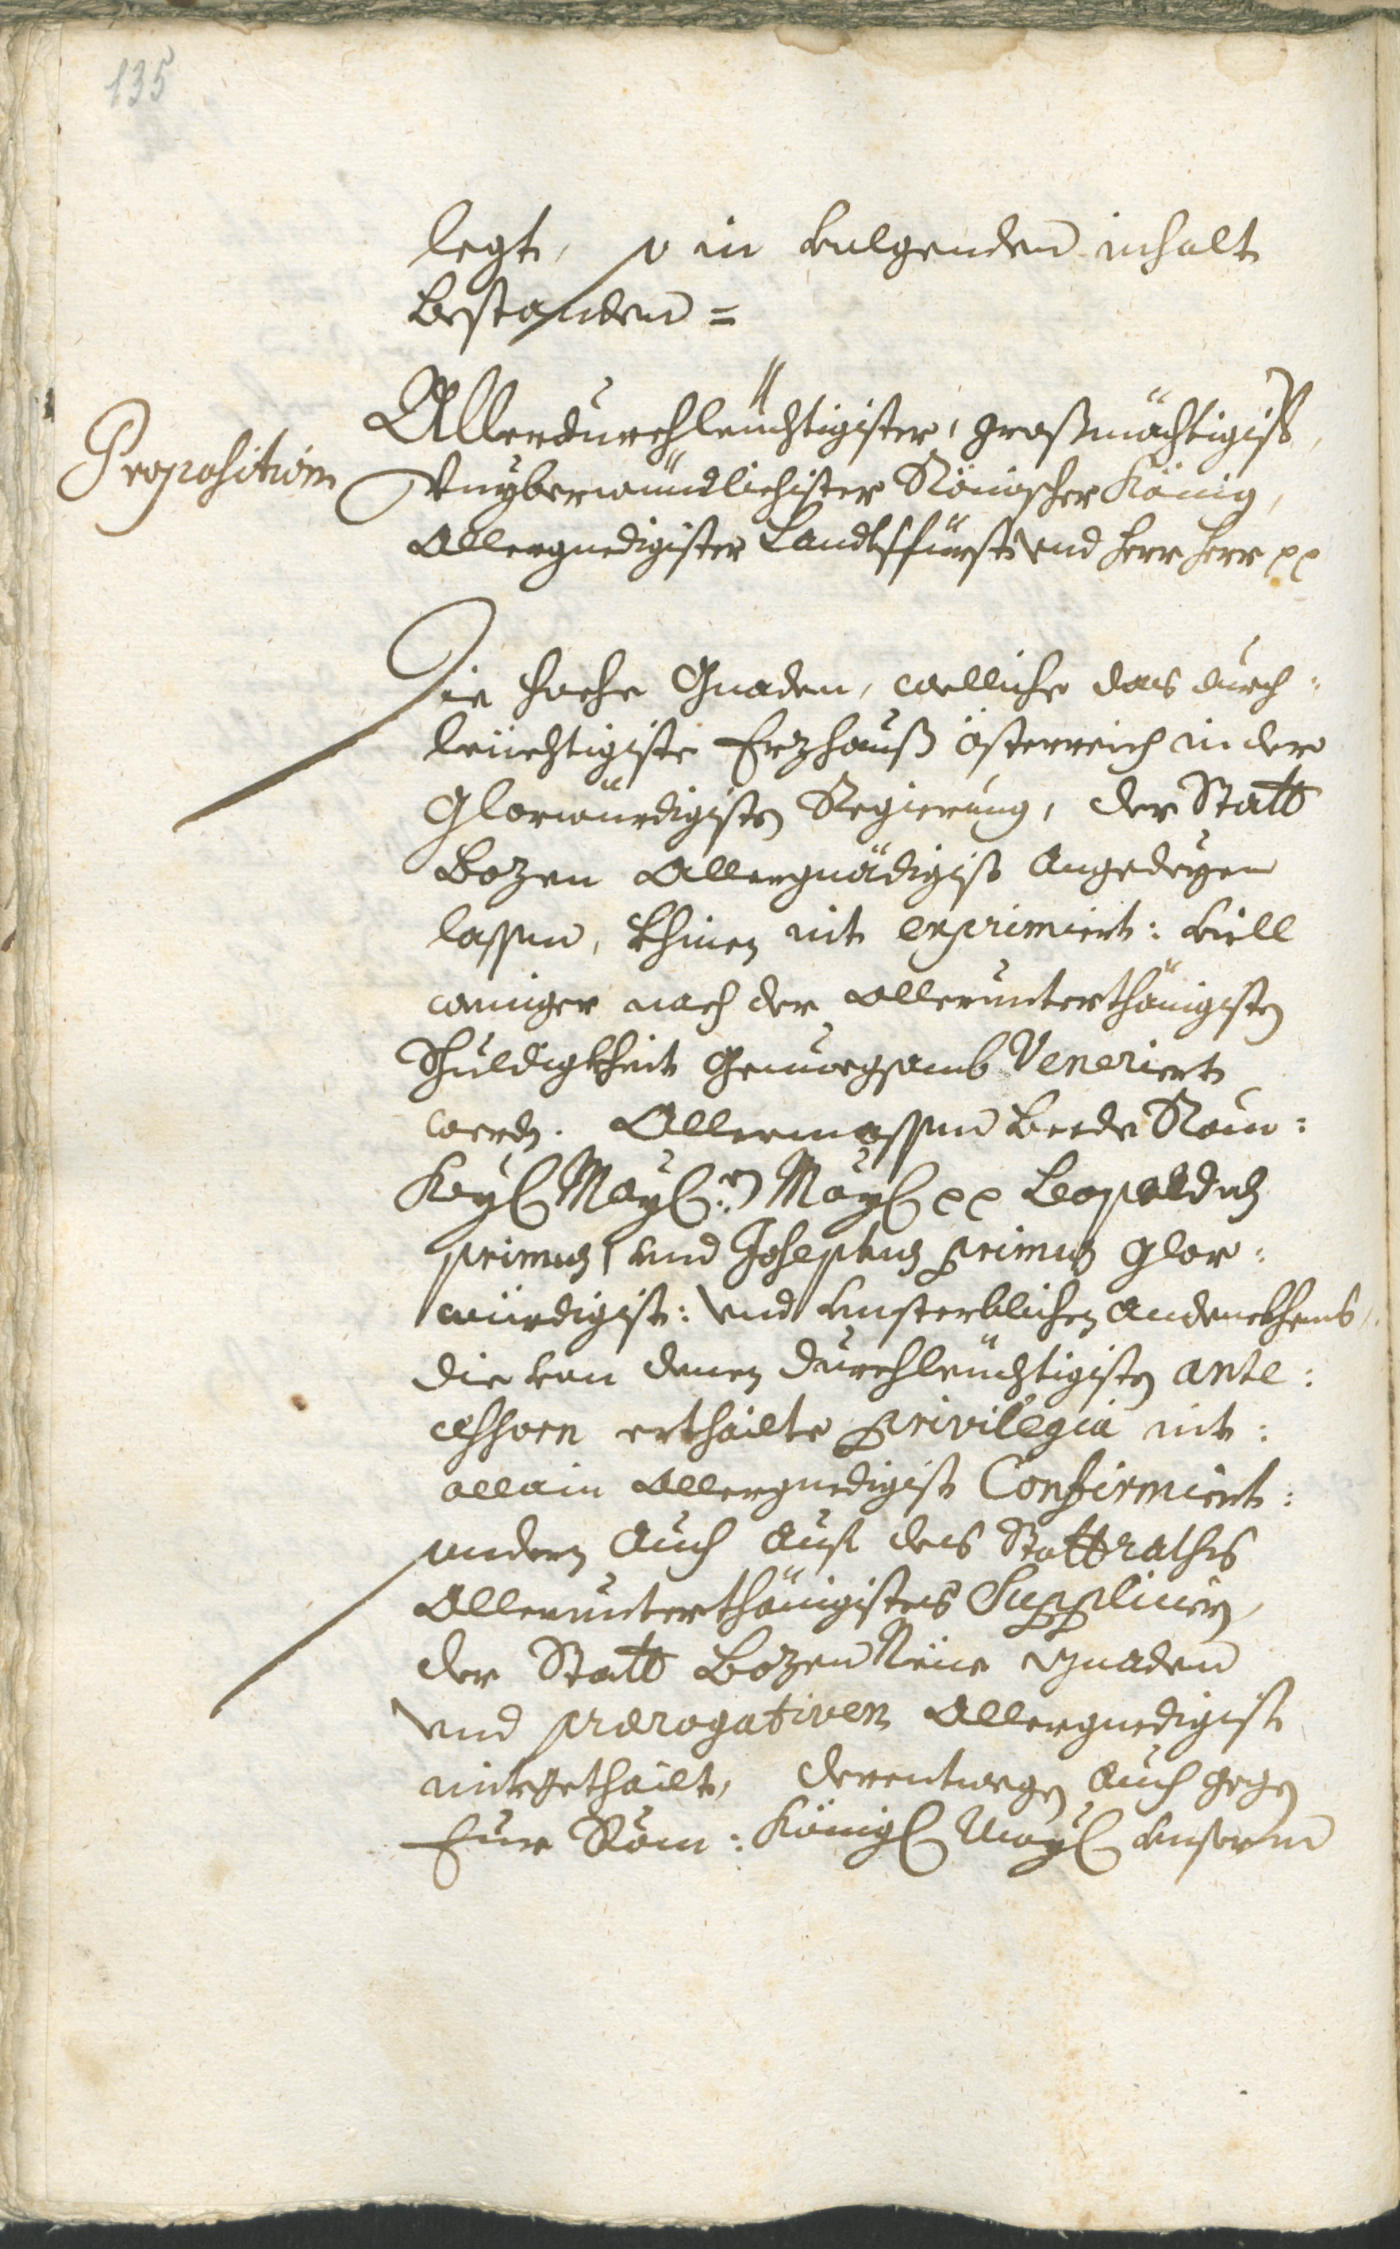 135
legt, so in volgenden inhalt
bestanden =
Proposition
Allerdurchleüchtigister, großmächtigist,
Vnyberwündlichister Römischer König,
Allergnedigister Landtsfürst vnd herr herr
Die hoche Gnaden, welliche das durch=
leüchtigiste Erzhauß österreich in dero
Glorwürdigisten Regierung, der Statt
Bozen Allergnädigist Angedeyen
lassen, khinen nit exprimiert: vill
weniger nach der allerunterthänigisten
Schuldigkheit Genuegsamb Veneriert
werden. Allermassen beede Röm:
Kayl May: May Leopoldus
primus, vnd Josephus primus glor=
würdigist: vnd vnsterblichen andenckhens,
die von denen Durchleüchtigisten ante:
cessorn erthailte privilegia nit:
allain allergnedigist Confirmiert:
sondern Auch Auf des Stattraths
Allerunterthänigistes Supplicirn,
der Statt Bozen Neüe gnaden
vnd prærogativen Allergnedigist
mitgethailt, derentwegen Auch gegen
Eur Röm: Königl May vnserm